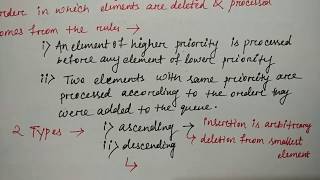 order in which elements are deleted & processed
comes from the rules →
i) An element of higher priority is processed
before any element of lower priority
ii) Two elements with same priority are
processed according to the order they
were added to the queue.
2 Types → i) ascending → insertion is arbitrary
ii) descending → deletion from smallest
element
↳